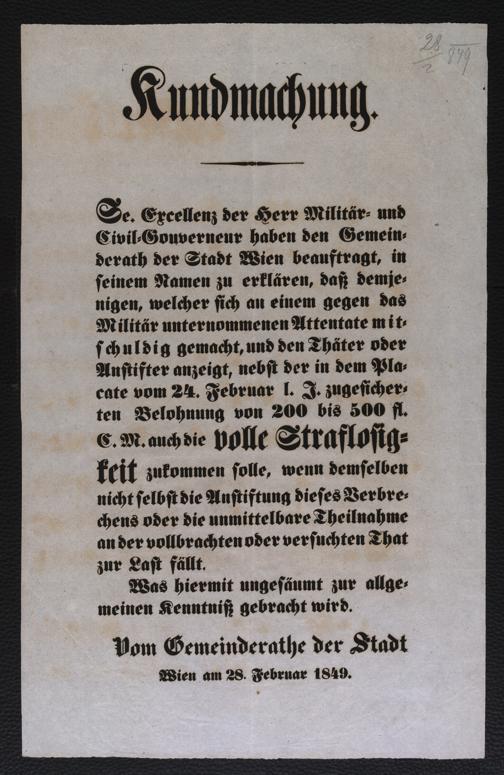 28/2 849
Kundmachung.
Se. Excellenz der Herr Militär- und
Civil-Gouverneur haben den Gemein-
derath der Stadt Wien beauftragt, in
seinem Namen zu erklären, daß demje-
nigen, welcher sich an einem gegen das
Militär unternommenen Attentate mit-
schuldig gemacht, und den Thäter oder
Anstifter anzeigt, nebst der in dem Pla-
cate vom 24. Februar l. J. zugesicher-
ten Belohnung von 200 bis 500 fl.
C. M. auch die volle Straflosig-
keit zukommen solle, wenn demselben
nicht selbst die Anstiftung dieses Verbre-
chens oder die unmittelbare Theilnahme
an der vollbrachten oder versuchten That
zur Last fällt.
Was hiermit ungesäumt zur allge-
meinen Kenntniß gebracht wird.
Vom Gemeinderathe der Stadt
Wien am 28. Februar 1849.